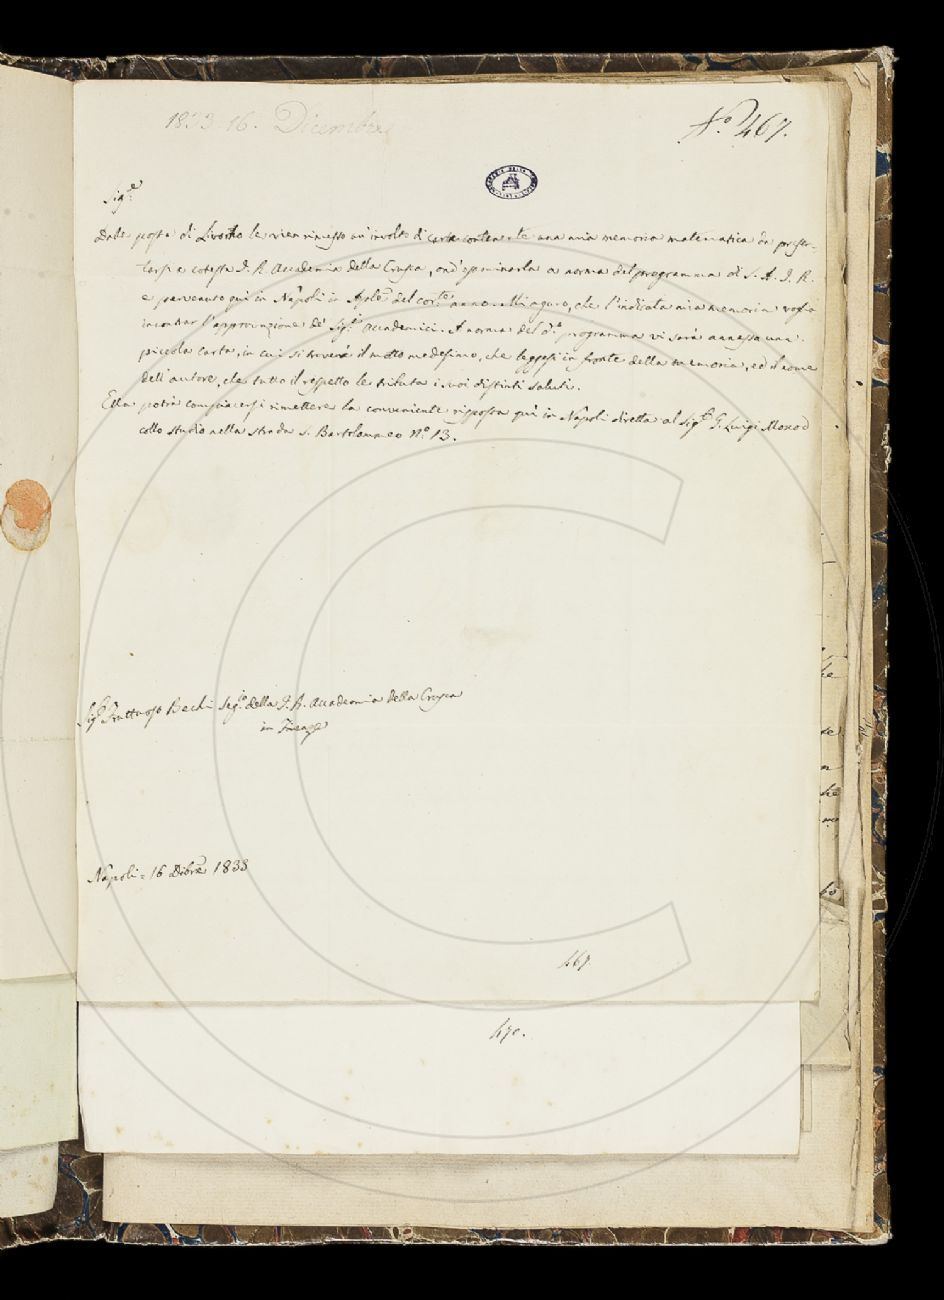 1833 16. Dicembre
N.º 467.
Sig.re
Dalla posta di Livorno le vien rimesso un'involto di carta contenente una mia memoria matematica da presen-
tarsi a cotesta I. R. Accademia della Crusca, ond'esaminarla a norma del programma di S. A. I. R.
e pervenuto quì in Napoli in Aple. del cor.te anno. Mi auguro, che l'indicata mia memoria voglia
incontrar l'approvazione de' Sig.i Accademici. A norma del d.o programma vi sarà annessa una
piccola carta, in cui si troverà il motto medesimo, che leggesi in fronte della memoria, ed il nome
dell'autore, che tutto il rispetto le tributa i suoi distinti saluti.
Ella potrà compiacersi rimettere la conveniente risposta quì in Napoli diretta al Sig.r G. Luigi
collo studio nella strada S. Bartolommeo N.º 13.
Sig.r Fruttuoso Becchi Seg.io della I. R. Accademia della Crusca
in Firenze
Napoli = 16 Dibre 1833
467.
470.